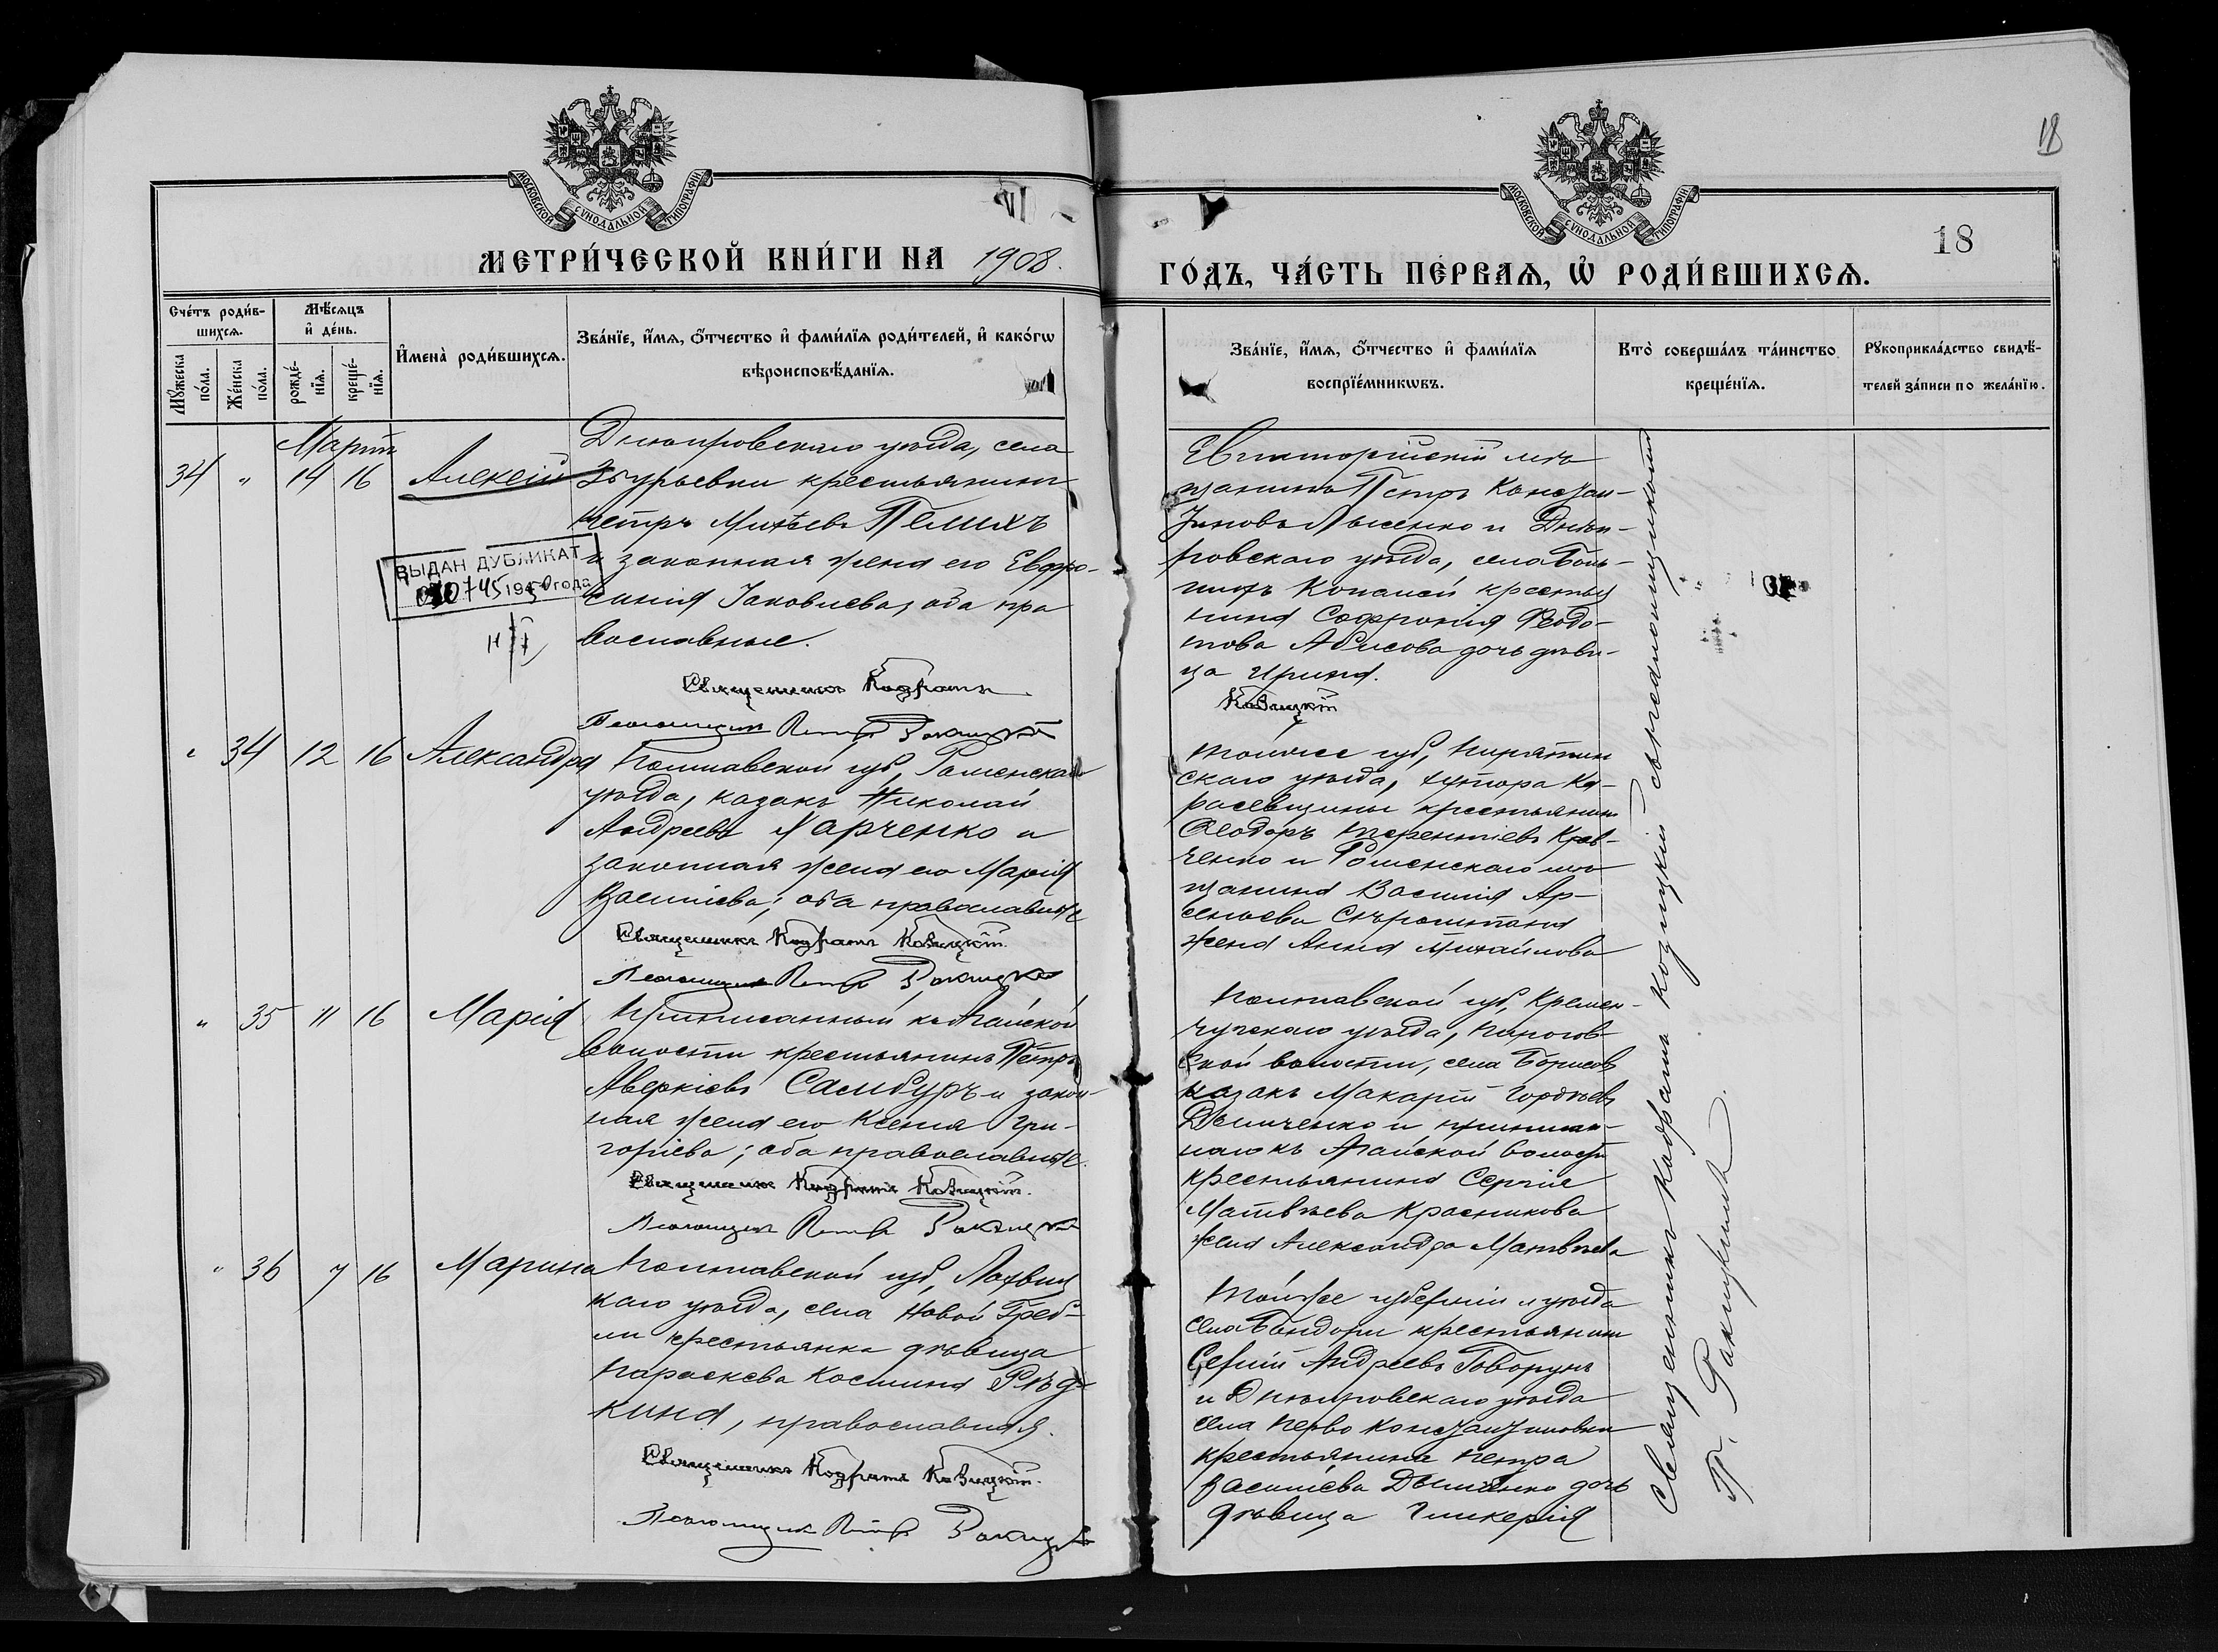 18
МОСКОВСКОЙ СУНОДАЛЬНОЙ ТИПОГРАФІИ
МОСКОВСКОЙ СУНОДАЛЬНОЙ ТИПОГРАФІИ
18
МЕТРИ́ЧЕСКОЙ КНИ́ГИ НА 1908.
ГО́ДЪ, ЧА́СТЬ ПЕ́РВАѦ, Ѡ҆ РОДИ́ВШИХСѦ.
Сче́тъ роди́в-
шихсѧ.
Мꙋ́жеска
по́ла.
Же́нска
по́ла.
Мѣ́сѧцъ
и҆ де́нь.
рожде́-
нїѧ.
креще́-
нїѧ.
И҆мена̀ роди́вшихсѧ.
Зва́нїе, и҆́мѧ, ѻ҆́тчество и҆ фами́лїѧ роди́телей, и҆ како́гѡ
вѣроисповѣ́данїѧ.
Зва́нїе, и҆́мѧ, ѻ҆́тчество и҆ фами́лїѧ
воспрїе́мникѡвъ.
Кто̀ соверша́лъ та́инство
креще́нїѧ.
Рꙋкоприкла́дство свидѣ́-
телей за́писи по жела́нїю.
Мартъ
34 " 14 16 Алексій
Днѣпровскаго уѣзда, села
Збурьевки крестьянинъ
Петръ Михѣевъ Пелихъ
и законная жена его Евфро-
синія Іаковлева, оба пра
вославные.
Священникъ Кодратъ
Козицкій
Псаломщикъ Петръ
ВЫДАН ДУБЛИКАТ
0745 1950 года
Евпаторійскій мѣ
щанинъ Петръ Констан-
тиновъ Лысенко и Днѣп-
ровскаго уѣзда, села Боль-
шихъ Копаней крестья
нина Софронія Ѳеодо-
това дочь дѣви-
ца Ирина.
" 34 12 16 Александра
Полтавской губ, Роменскаго
уѣзда, казакъ Николай
Андреевъ Харченко и
законная жена его Марія
Василіева; оба православные
Священникъ Кодратъ Козицкій.
Псаломщикъ Петръ
Той же губ, Пирятин
скаго уѣзда, хутора Ка-
расевщины крестьянинъ
Ѳеодоръ Терентіевъ Крав-
ченко и Роменскаго мѣ
щанина Василія Ар-
сеньева
жена Анна Михайлова
" 35 11 16 Марія
Приписанный къ Агайской
волости крестьянинъ Петръ
Аверкіевъ Самбуръ и закон-
ная жена его Ксенія Гри-
горіева; оба православные.
Священникъ Кодратъ Козицкій.
Псаломщикъ Петръ
Полтавской губ, Кремен-
чугскаго уѣзда,
ской волости, села
казакъ Макарій Гордѣевъ
Демченко и приписан-
наго къ Агайской волости
крестьянина Сергія
Матвѣева Красникова
жена Александра Матвѣева
" 36 7 16 Марина
Полтавской губ, Лохвиц
каго уѣзда, села Новой Греб-
ли крестьянка дѣвица
Параскева Космина Рѣд-
кина, православная.
Священникъ Кодратъ Козицкій.
Псаломщикъ Петръ
Той же губерніи и уѣзда
села Бандори крестьянинъ
Сергій Андреевъ Говорунъ
и Днѣпровскаго уѣзда
села Перво Константиновки
крестьянина Петра
Василіева дочь
дѣвица Гликерія
Священникъ Кодратъ Козицкій съ псаломщикомъ
П.